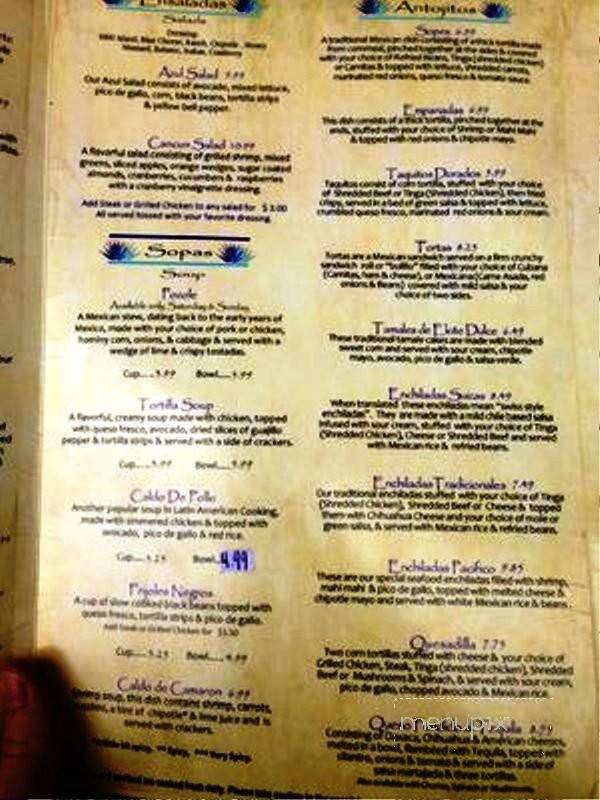 Ensaladas
Salads
Dressing:
Island, Blue Cheese, Ranch, Chipotle, Honey
Mustard, Balsamic, Italian, Cranberry
Azul Salad
Our Azul Salad consists of avocado, mixed lettuce,
pico de gallo, corn, black beans, tortilla strips
& yellow bell pepper.
Cancun Salad 10.99
A flavorful salad consisting of grilled shrimp, mixed
greens, sliced apples, orange wedges, sugar coated
almonds, cranberries, cucumbers & raspberries
with a cranberry vinaigrette dressing
Add Steak or Grilled Chicken to any salad for $ 3.00
All served tossed with your favorite dressing.
Sopas
Soup
Pozole
Available only Saturday & Sunday
A Mexican stew, dating back to the early years of
Mexico, made with your choice of pork or chicken,
hominy corn, onions, & cabbage & served with a
wedge of lime & crispy tostadas.
Cup Bowl
Tortilla Soup
A flavorful, creamy soup made with chicken, topped
with queso fresco, avocado, dried slices of guajillo
pepper & tortilla strips & served with a side of crackers.
Cup Bowl
Caldo De Pollo
Another popular soup in Latin American Cooking,
made with simmered chicken & topped with
avocado, pico de gallo & red rice.
Cup Bowl 4.99
Frijoles Negros
A cup of slow cooked black beans topped with
queso fresco, tortilla strips & pico de gallo.
Add Steak or Grilled Chicken for $1.50
Cup Bowl
Caldo de Camaron 6.99
soup, this dish contains shrimp, carrots,
a hint of chipotle* & lime juice and is
served with crackers.
Spicy, *** Very Spicy.
Antojitos
Sopes
A traditional Mexican dish consisting of a thick tortilla made
from cornmeal, pinched together at the sides & stuffed
with your choice of Refried Beans, Tinga (shredded chicken)
or Carnitas & topped with lettuce, shredded carrots,
marinated red onions, queso fresco & tomato sauce.
Empanadas
This dish consists of a thick tortilla, pinched together at the
ends, stuffed with your choice of Shrimp or Mahi Mahi
& topped with red onions & chipotle mayo.
Taquitos Dorados
Taquitos consist of corn tortilla, stuffed with your choice
of Shredded Beef or Tinga (Shredded Chicken), then fried
crispy, served in a bed of green salsa & topped with lettuce,
crumbled queso fresco, marinated red onions & sour cream.
Tortas 8.25
Tortas are a Mexican sandwich served on a firm crunchy
sandwich roll or "bolillo" filled with your choice of Cubana
(Carnitas, ham & cheese), or Mexicana(Carne Asada, red
onions & Beans) covered with mild salsa & your
choice of two sides.
Tamales de Elote Dulce 6.49
These traditional tamale cakes are made with blended
sweet corn and served with sour cream, chipotle
mayo, avocado, pico de gallo & salsa verde.
Enchiladas Suizas 8.49
When translated these enchiladas mean "swiss style
enchiladas". They are made with a mild chile based salsa
infused with sour cream, stuffed with your choice of Tinga
(Shredded Chicken), Cheese or Shredded Beef and served
with Mexican rice & refried beans.
Enchiladas Tradicionales 7.49
Our traditional enchiladas stuffed with your choice of Tinga
(Shredded Chicken), Shredded Beef or Cheese & topped
Them with Chihuahua Cheese and your choice of mole or
green salsa, & served with Mexican rice & refried beans.
Enchiladas Pacifico 9.85
These are our special seafood enchiladas filled with shrimp,
mahi mahi & pico de gallo, topped with melted cheese &
chipotle mayo and served with white Mexican rice & beans.
Quesadilla 7.75
Two corn tortillas stuffed with cheese & your choice of
Grilled Chicken, Steak, Tinga (shredded chicken), Shredded
Beef or Mushrooms & Spinach, & served with sour cream,
pico de gallo, chopped avocado & Mexican rice.
menupix
Consisting of Oaxaca, Chihuahua & American cheeses,
melted in a bowl, flambéed with Tequila, topped with
cilantro, onions & tomato & served with a side of
salsa martajada & three tortillas.
Also available with Chorizo, Spinach or Mushrooms.